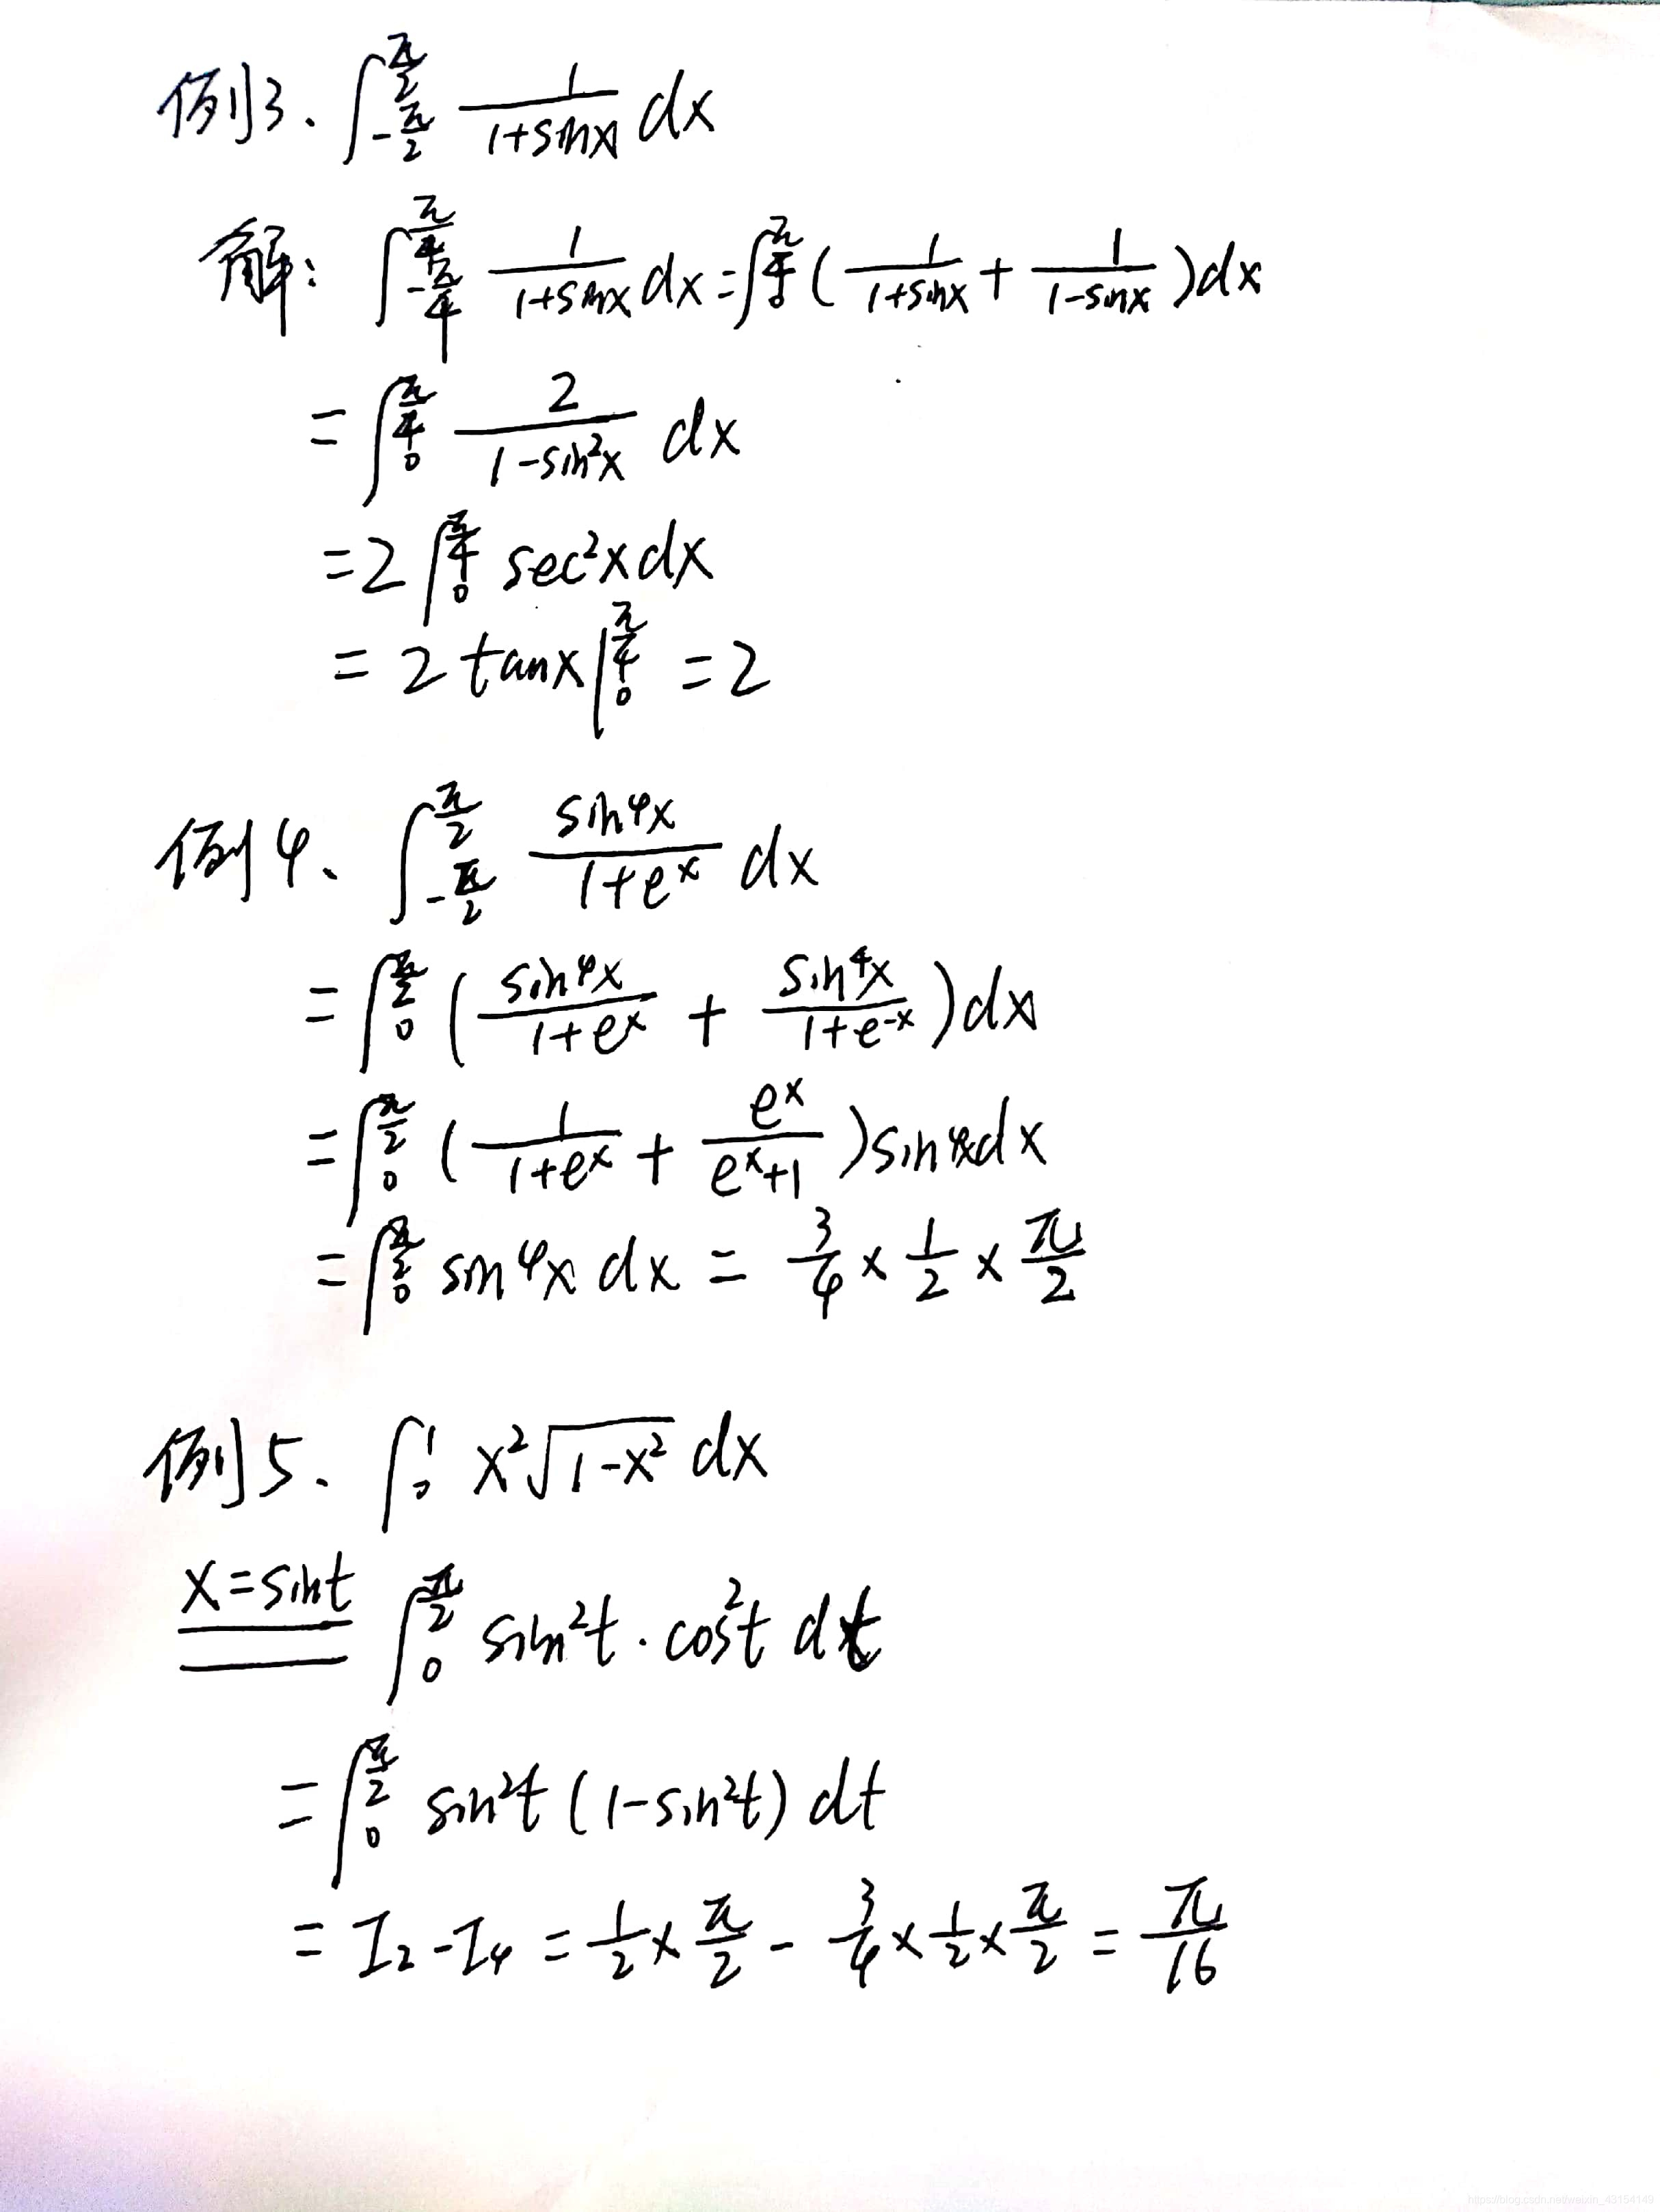 例3、∫_{-π/2}^{π/2} 1/(1+sinx) dx
解: ∫_{-π/4}^{π/4} 1/(1+sinx) dx = ∫_0^{π/4} ( 1/(1+sinx) + 1/(1-sinx) )dx
= ∫_0^{π/4} 2/(1-sin²x) dx
= 2 ∫_0^{π/4} sec²x dx
= 2 tanx |_0^{π/4} = 2
例4、∫_{-π/2}^{π/2} sin⁴x/(1+e^x) dx
= ∫_0^{π/2} ( sin⁴x/(1+e^x) + sin⁴x/(1+e^{-x}) )dx
= ∫_0^{π/2} ( 1/(1+e^x) + e^x/(e^x+1) )sin⁴x dx
= ∫_0^{π/2} sin⁴x dx = 3/4 × 1/2 × π/2
例5、∫_0^1 x²√(1-x²) dx
x=sint ∫_0^{π/2} sin²t · cos²t dt
= ∫_0^{π/2} sin²t (1-sin²t) dt
= I₂ - I₄ = 1/2 × π/2 - 3/4 × 1/2 × π/2 = π/16
https://blog.csdn.net/weixin_43154149